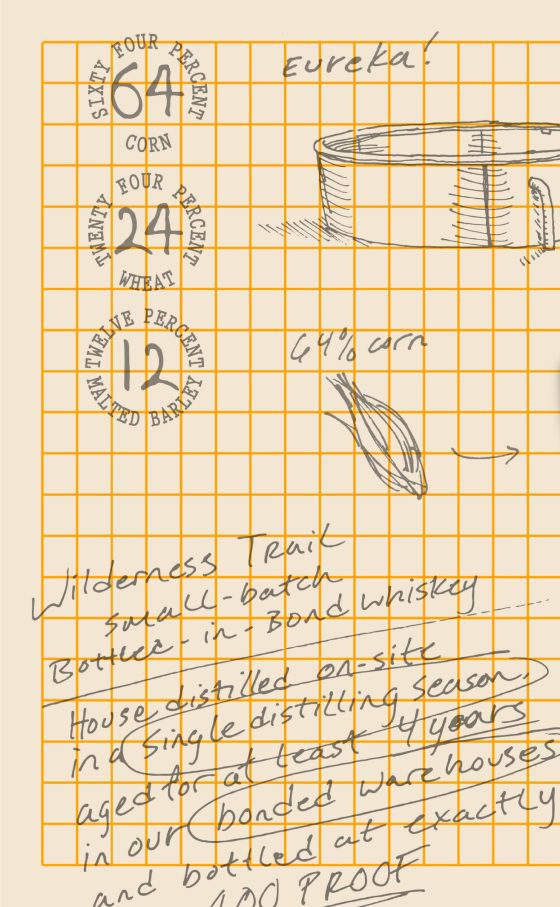 SIXTY FOUR PERCENT
64
CORN
TWENTY FOUR PERCENT
24
WHEAT
TWELVE PERCENT
12
MALTED BARLEY
Eureka!
64% corn
Wilderness Trail
Small-batch
Bottled-in-Bond whiskey
House distilled on-site
in a single distilling season,
aged for at least 4 years
in our bonded warehouses
and bottled at exactly
100 PROOF